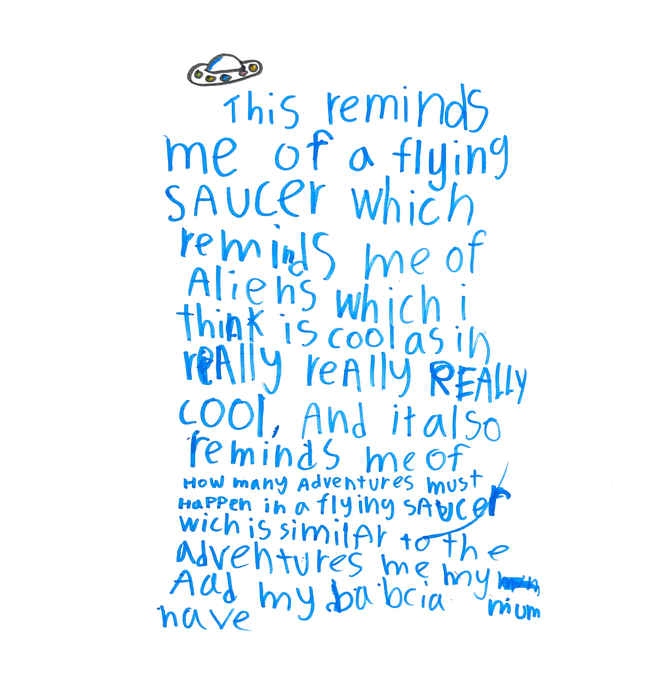 This reminds
me of a flying
SAUCER which
reminds me of
Aliens which i
think is cool as in
reAlly reAlly REALLY
COOl, And it also
reminds me of
HOW mANy ADVentures must
HAPPen in a flying sAucer
wich is similAr to the
adventures me my mum
Aad my babcia
have